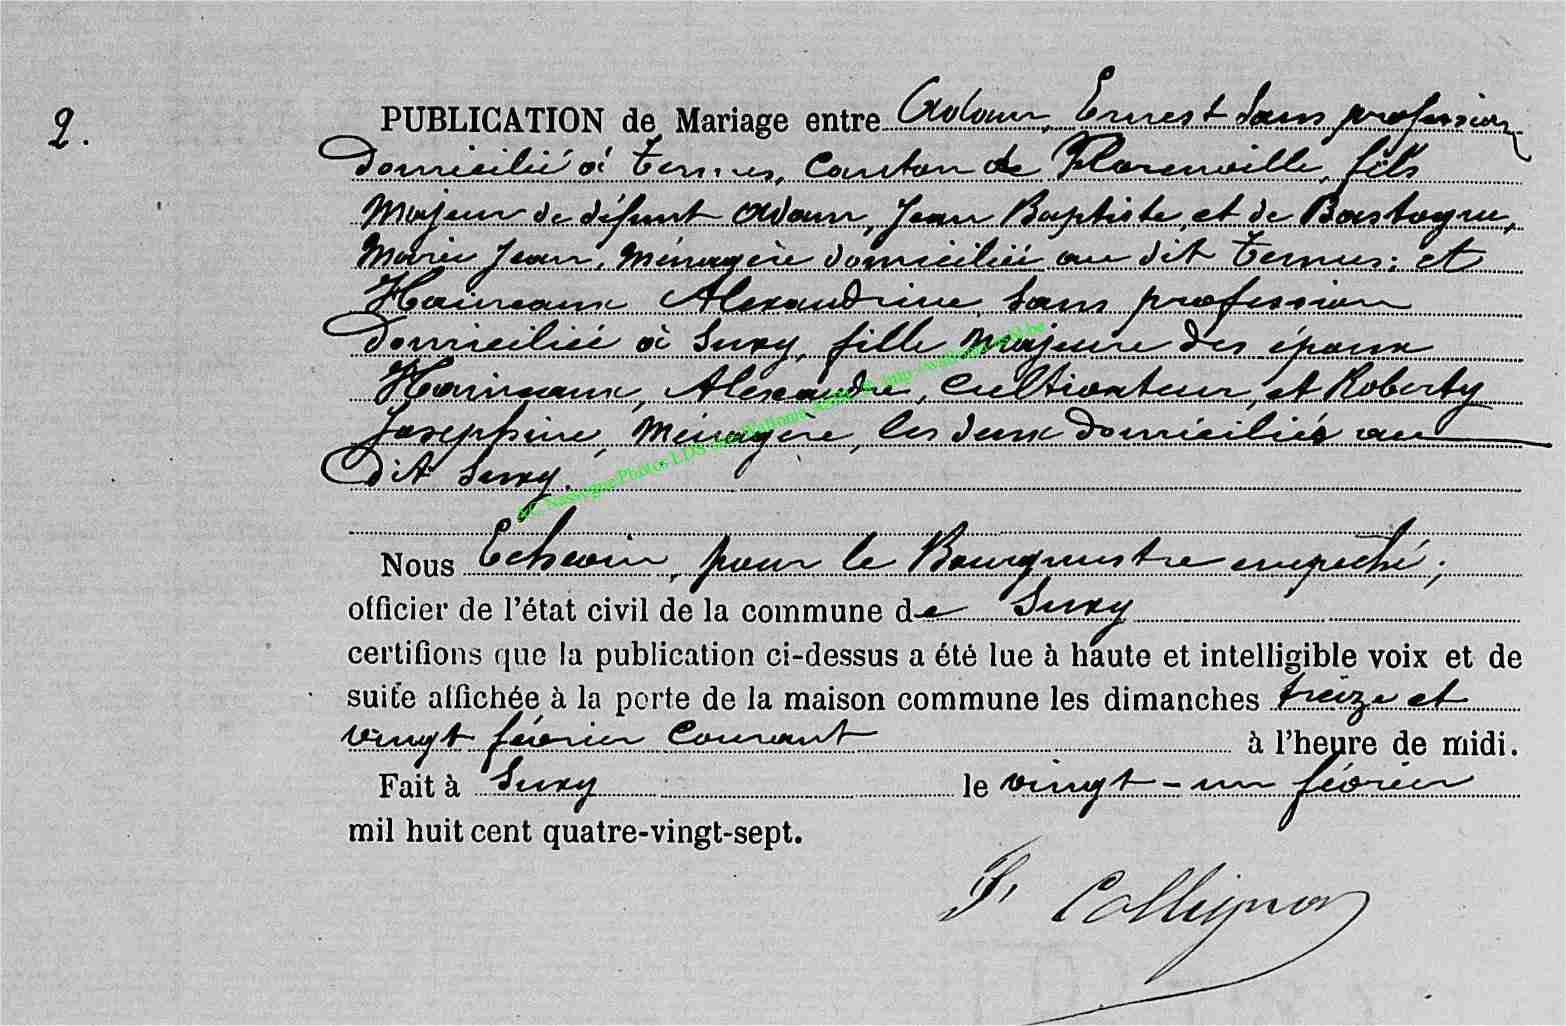 2.
PUBLICATION de Mariage entre Adam, Ernest sans profession
domicilié à Termes, Canton de Florenville, fils
Majeur de défunt Adam, Jean Baptiste, et de Bastogne,
Marie Jean, Ménagère domiciliée au dit Termes; et
Haineaux Alexandrine, sans profession
domiciliée à Suxy, fille Majeure des époux
Haineaux, Alexandre, Cultivateur, et Roberty
Josephine, Ménagère, les deux domiciliés au
dit Suxy.
Nous Echevin, pour le Bourgmestre empeché;
officier de l'état civil de la commune de Suxy
certifions que la publication ci-dessus a été lue à haute et intelligible voix et de
suite affichée à la porte de la maison commune les dimanches treize et
vingt février Courant à l'heure de midi.
Fait à Suxy le vingt-un février
mil huit cent quatre-vingt-sept.
Collignon